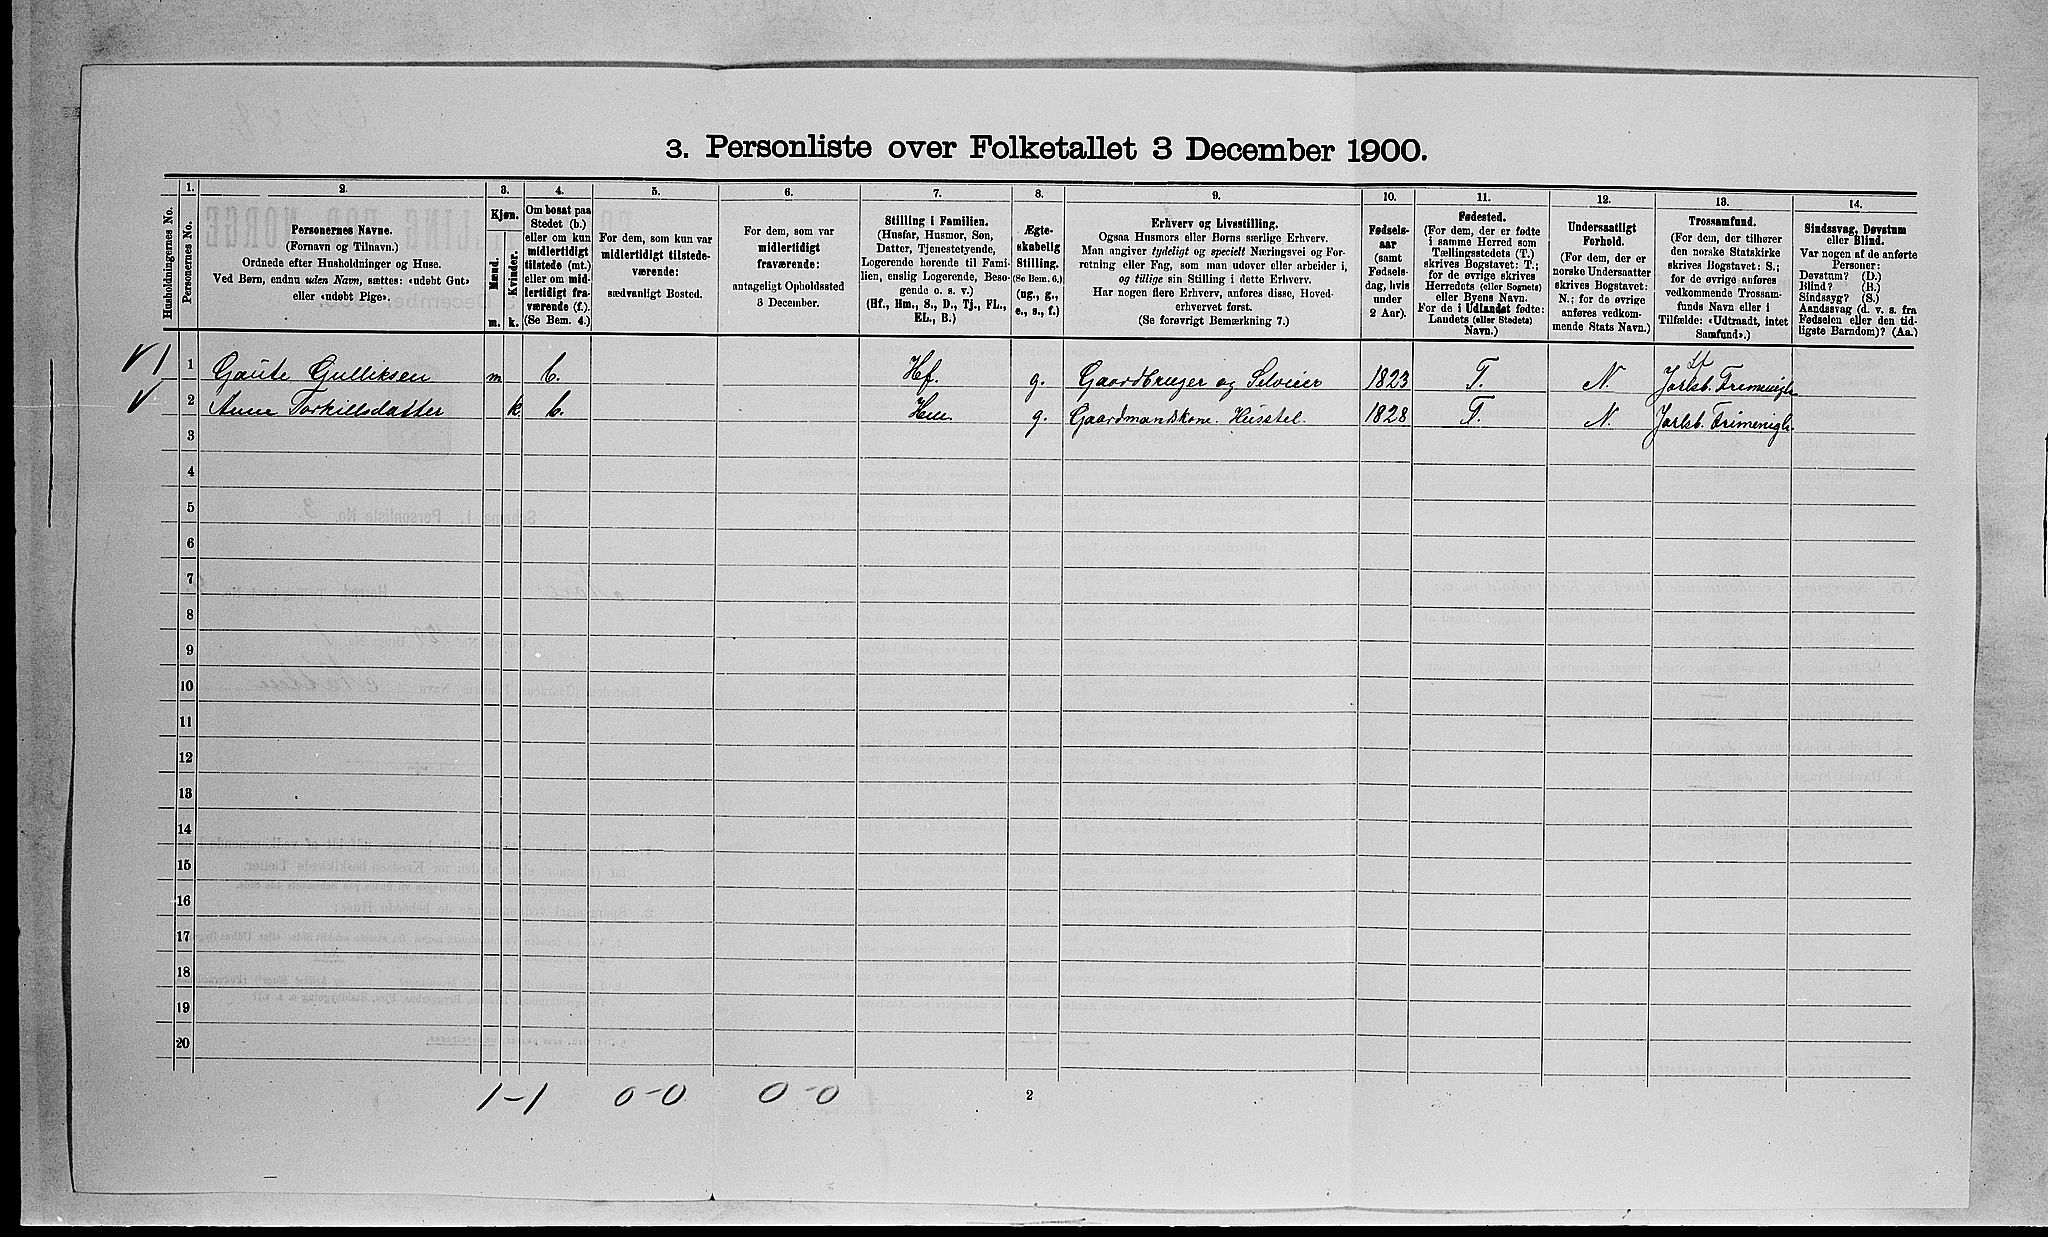 3. Personliste over Folketallet 3 December 1900.
Husholdningernes No.
1.
Personernes No.
2.
Personernes Navne.
(Fornavn og Tilnavn.)
Ordnede efter Husholdninger og Huse.
Ved Børn, endnu uden Navn, sættes: «udøbt Gut»
eller «udøbt Pige».
3.
Kjøn.
Mænd.
Kvinder.
m.
k.
4.
Om bosat paa
Stedet (b.)
eller om kun
midlertidigt
tilstede (mt.)
eller om mid-
lertidigt fra-
værende (f.).
(Se Bem. 4.)
5.
For dem, som kun var
midlertidigt tilstede-
værende:
sædvanligt Bosted.
6.
For dem, som var
midlertidigt
fraværende:
antageligt Opholdssted
3 December.
7.
Stilling i Familien.
(Husfar, Husmor, Søn,
Datter, Tjenestetyende,
Logerende hørende til Fami-
lien, enslig Logerende, Besø-
gende o. s. v.)
(Hf., Hm., S., D., Tj., FL.,
EL., B.)
8.
Ægte-
skabelig
Stilling.
(Se Bem. 6.)
(ug., g.,
e., s., f.)
9.
Erhverv og Livsstilling.
Ogsaa Husmors eller Børns særlige Erhverv.
Man angiver tydeligt og specielt Næringsvei og For-
retning eller Fag, som man udøver eller arbeider i,
og tillige sin Stilling i dette Erhverv.
Har nogen flere Erhverv, anføres disse, Hoved-
erhvervet først.
(Se forøvrigt Bemærkning 7.)
10.
Fødsels-
aar
(samt
Fødsels-
dag, hvis
under
2 Aar).
11.
Fødested.
(For dem, der er fødte
i samme Herred som
Tællingsstedets (T.)
skrives Bogstavet: T.;
for de øvrige skrives
Herredets (eller Sognets)
eller Byens Navn.
For de i Udlandet fødte:
Landets (eller Stedets)
Navn.)
12.
Undersaatligt
Forhold.
(For dem, der er
norske Undersaatter
skrives Bogstavet:
N.; for de øvrige
anføres vedkom-
mende Stats Navn.)
13.
Trossamfund.
(For dem, der tilhører
den norske Statskirke
skrives Bogstavet: S.;
for de øvrige anføres
vedkommende Trossam-
funds Navn eller i
Tilfælde: «Udtraadt, intet
Samfund».)
14.
Sindssvag, Døvstum
eller Blind.
Var nogen af de anførte
Personer:
Døvstum? (D.)
Blind? (B.)
Sindssyg? (S.)
Aandssvag (d. v. s. fra
Fødselen eller den tid-
ligste Barndom)? (Aa.)
1 1 Gaute Gulliksen m b. Hf. g. Gaardbruger og Selveier 1823 T. N. Jarlsb. Frimenigh.
2 Anne Torkillsdatter k b. Hm. g. Gaardmandskone. Husstel. 1828 T. N. Jarlsb. Frimenigh.
3
4
5
6
7
8
9
10
11
12
13
14
15
16
17
18
19
20
1-1 0-0 0-0 2